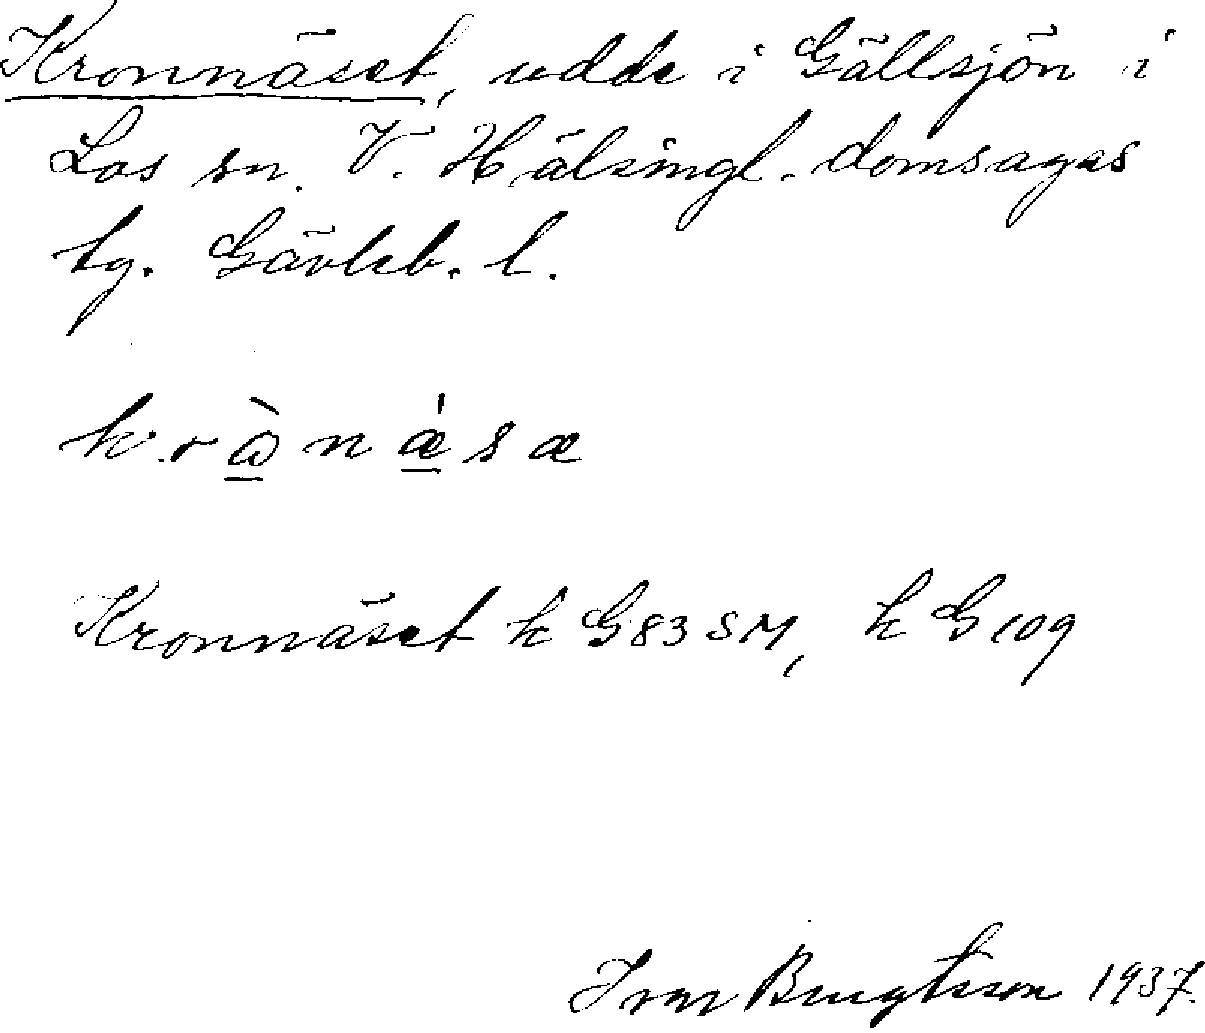 Kronnäset, udde i Gällsjön i
Los sn. V. Hälsingl. domsagas
tg. Gävleb. l.
k r ὼ n ǽ s æ
Kronnäset k G83SM, k G109
Ivar Bengtsson 1937.